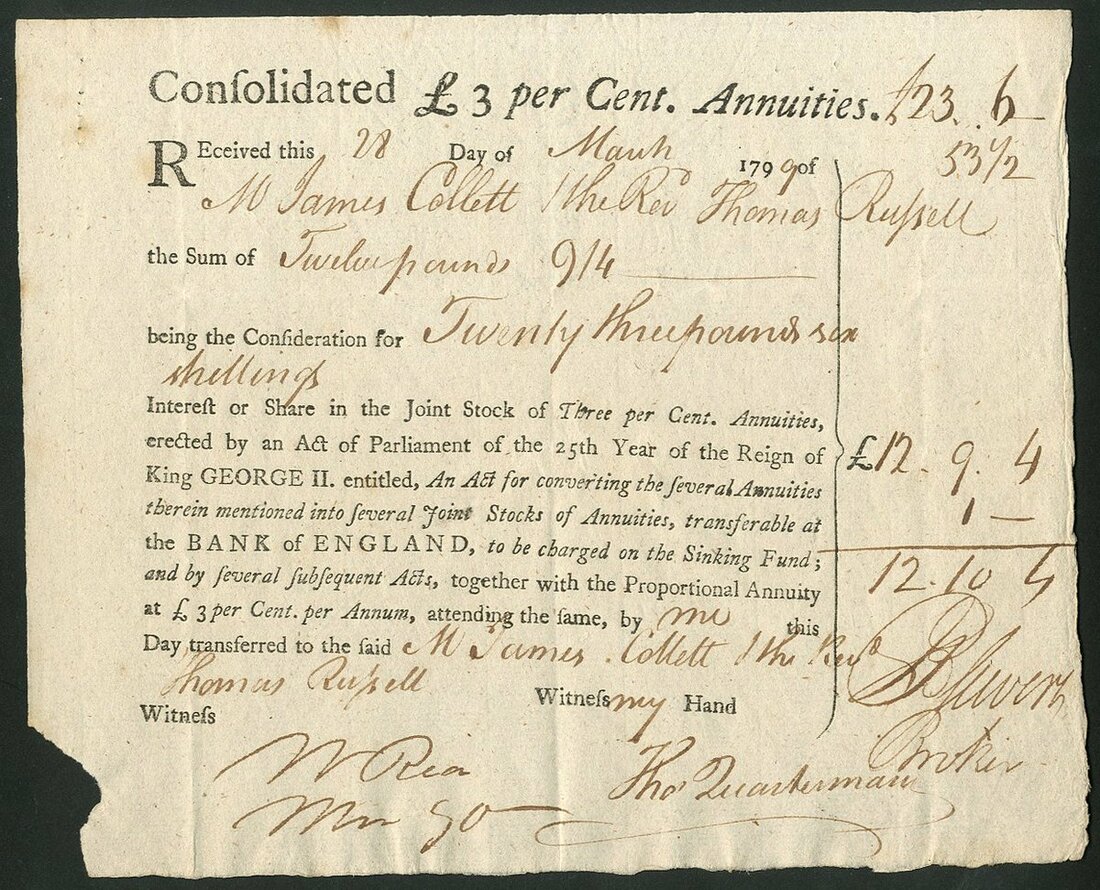 Conſolidated £ 3 per Cent. Annuities. £23. 6
53 1/2
REceived this 28 Day of March 1799 of
Mr James Collett & the Revd Thomas Ruſsell
the Sum of Twelve pounds 9/4
being the Conſideration for Twenty three pounds six
shillings
Intereſt or Share in the Joint Stock of Three per Cent. Annuities,
erected by an Act of Parliament of the 25th Year of the Reign of
King GEORGE II. entitled, An Act for converting the ſeveral Annuities
therein mentioned into ſeveral Joint Stocks of Annuities, transferable at
the BANK of ENGLAND, to be charged on the Sinking Fund;
and by ſeveral ſubſequent Acts, together with the Proportional Annuity
at £ 3 per Cent. per Annum, attending the ſame, by me this
Day transferred to the ſaid Mr James Collett & the Revd
Thomas Ruſsell
£12. 9. 4
1 —
12. 10 4
Witneſs my Hand
Witneſs
Broker
Thos Quartermain